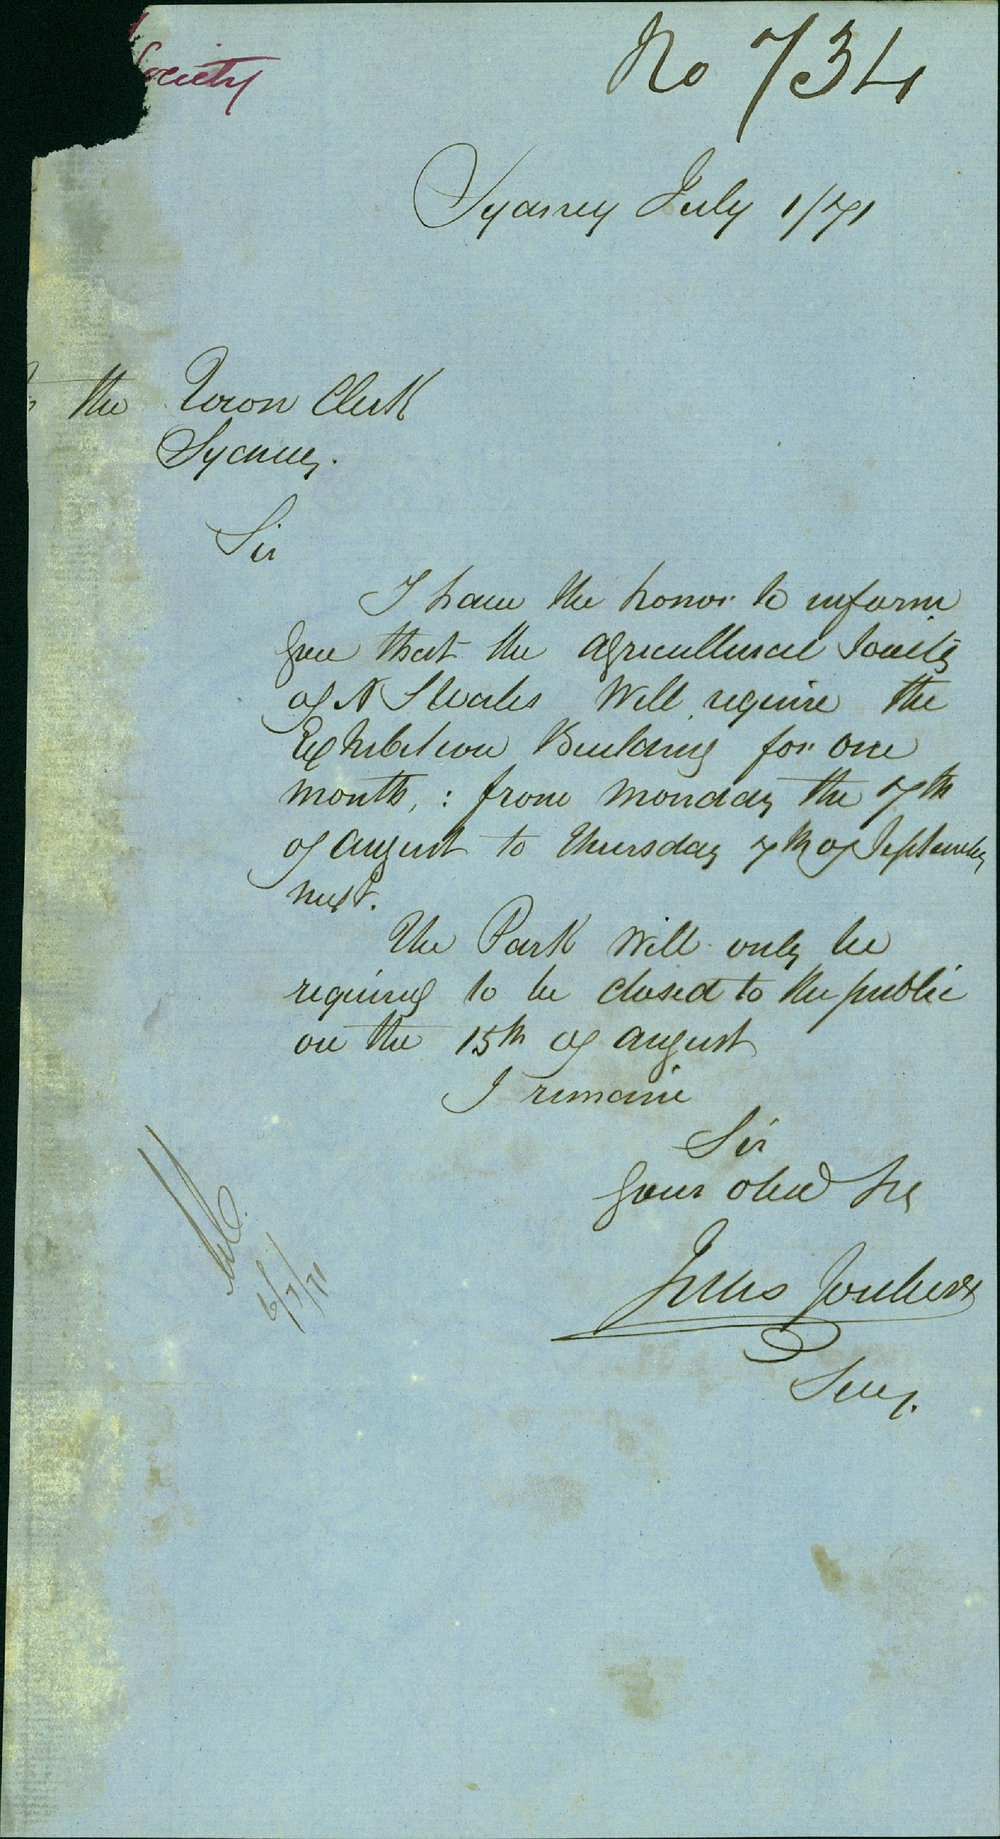 Society
No 734
Sydney July 1/71
To the Town Clerk
Sydney.
Sir
I have the honor to inform
you that the Agricultural Society
of N S Wales Will require the
Exhibition Building for one
month, : from Monday the 7th
of August to Thursday 7th of September
next.
The Park Will only be
required to be closed to the public
on the 15th of August
I remain
Sir
Your obed
Jules Joubert
Secy.
6/7/71